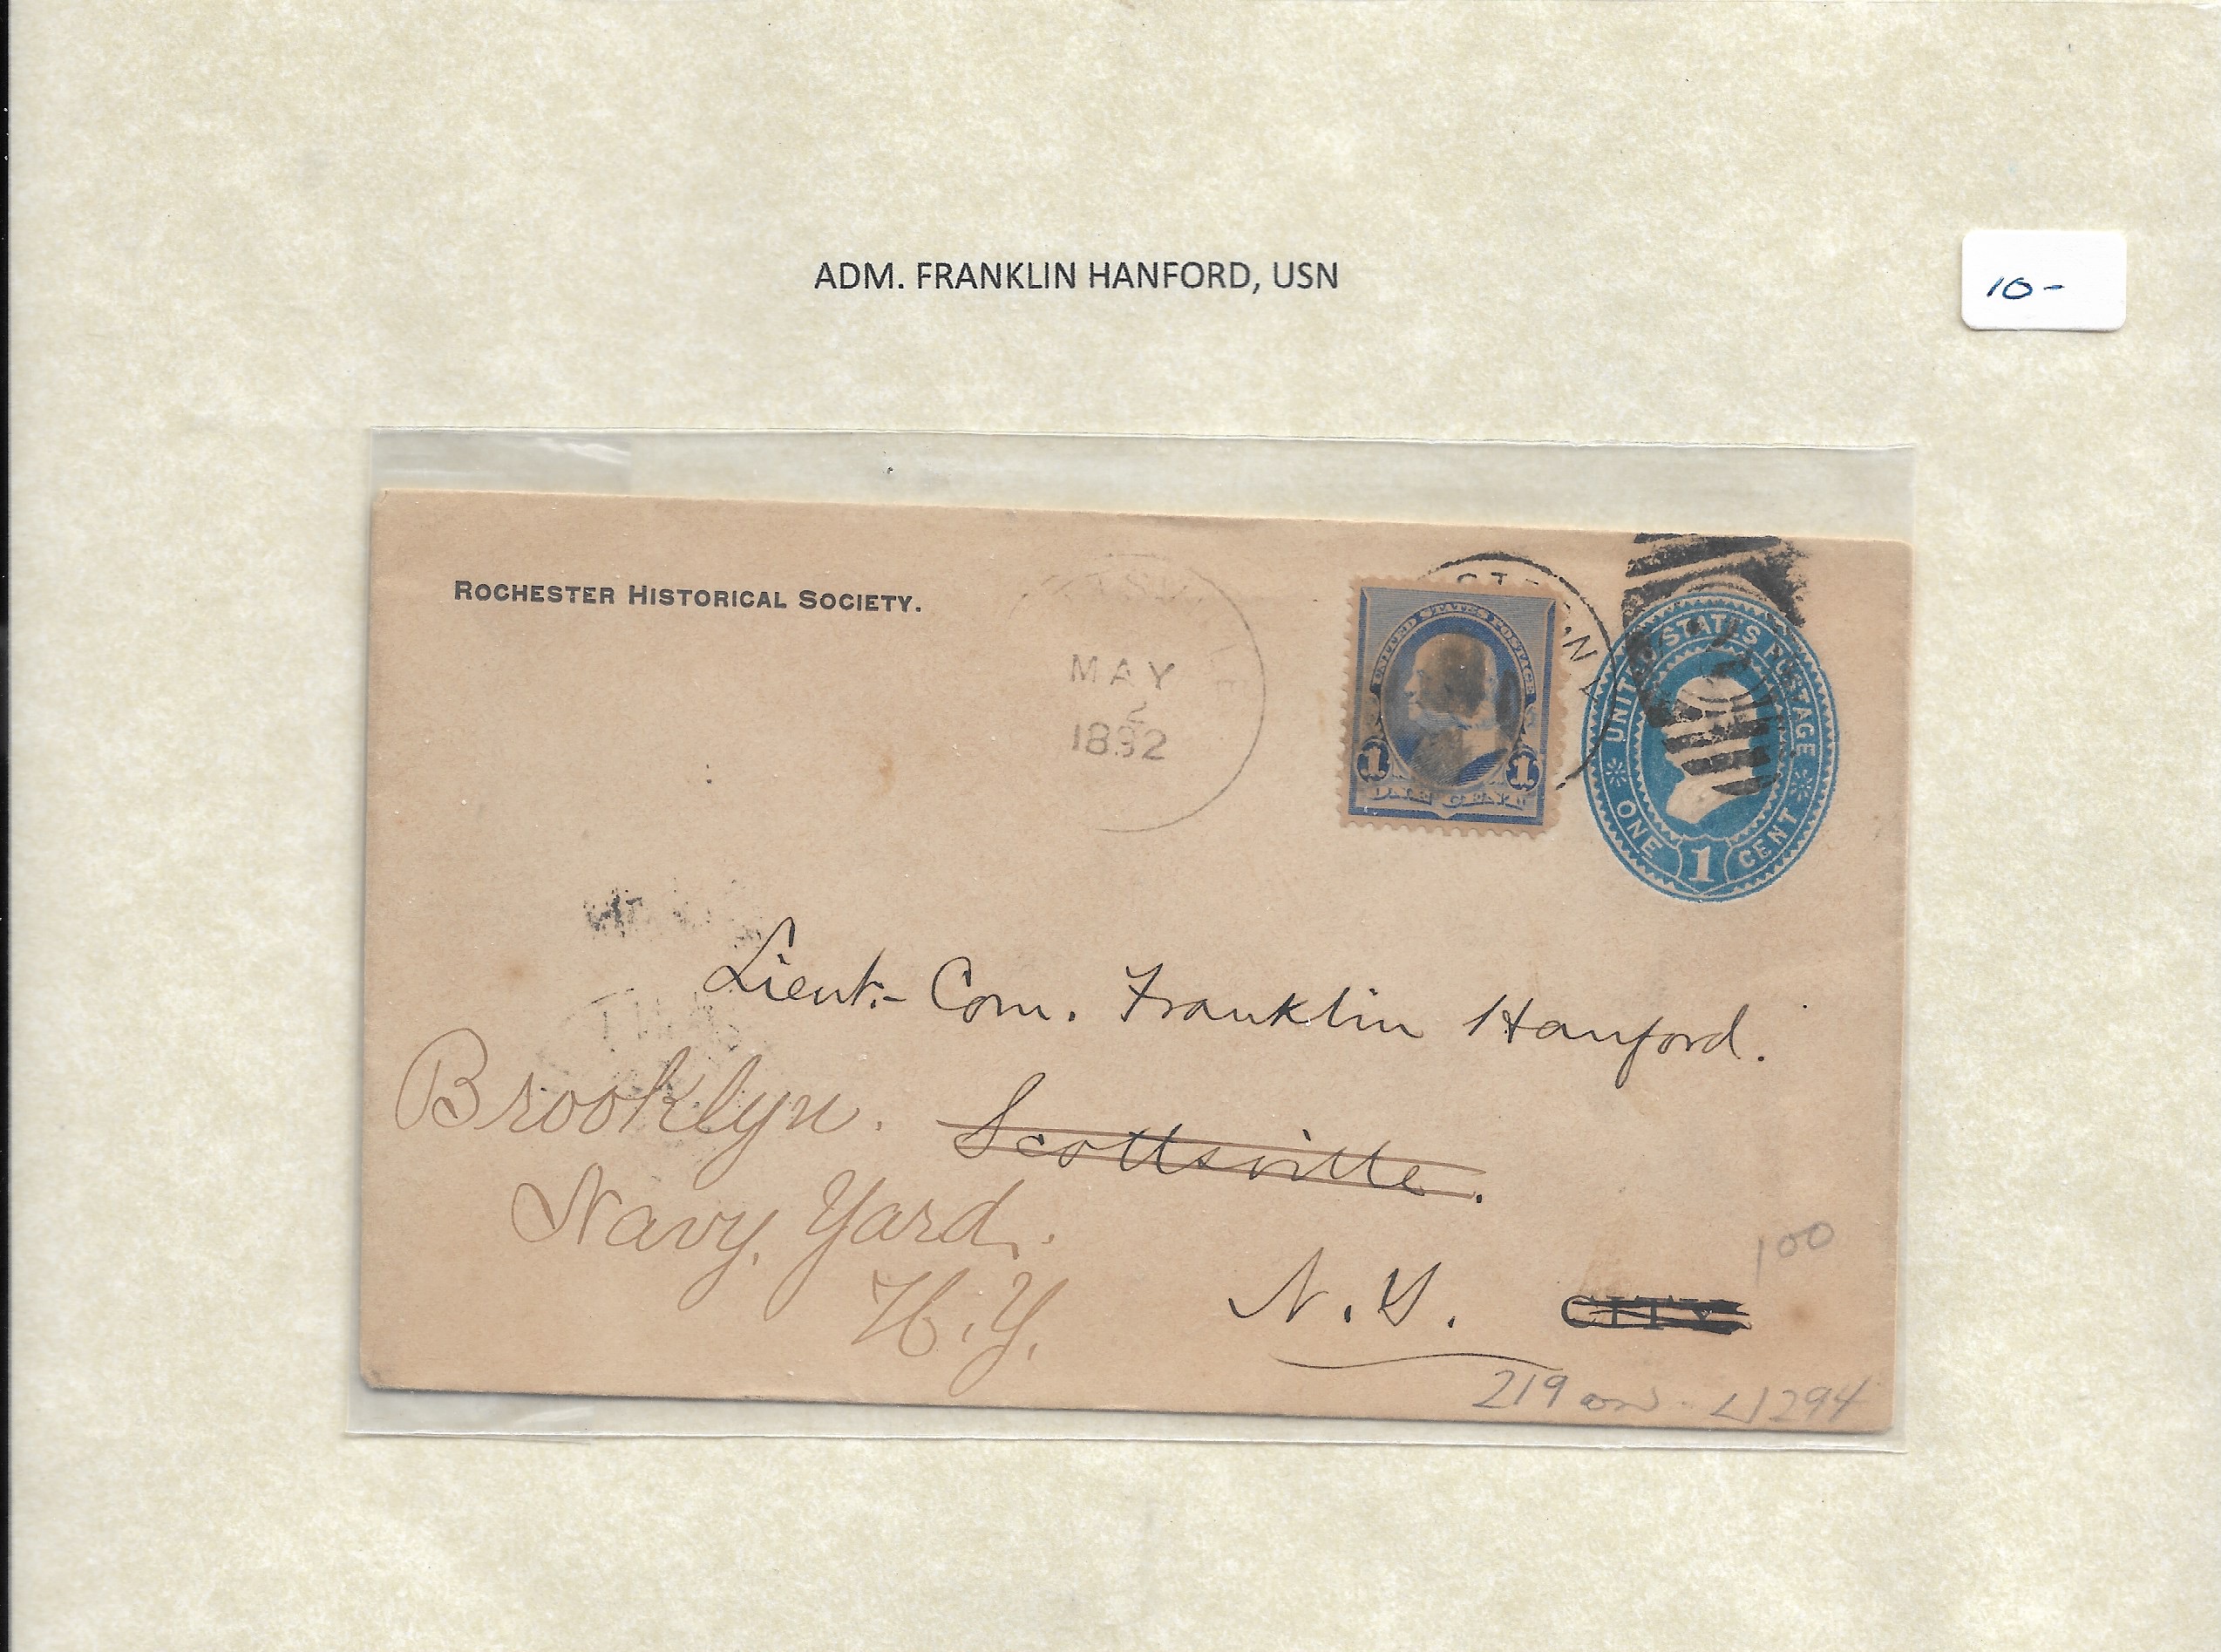 ADM. FRANKLIN HANFORD, USN
10-
ROCHESTER HISTORICAL SOCIETY.
MAY
2
1892
UNITED STATES POSTAGE
1 1
ONE CENT
UNITED STATES POSTAGE
ONE 1 CENT
Lieut.- Com. Franklin Hanford.
Brooklyn. Scottsville.
Navy Yard.
N.Y.
N. Y. CITY
100
219 on U294